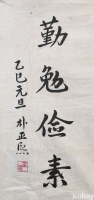 勤勉俭素
乙巳元旦 朴正熙
kobay